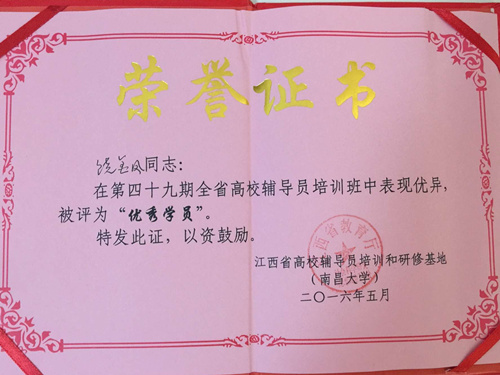 荣誉证书
饶金凤同志:
在第四十九期全省高校辅导员培训班中表现优异,
被评为“优秀学员”。
特发此证,以资鼓励。
江西省高校辅导员培训和研修基地
(南昌大学)
二〇一六年五月